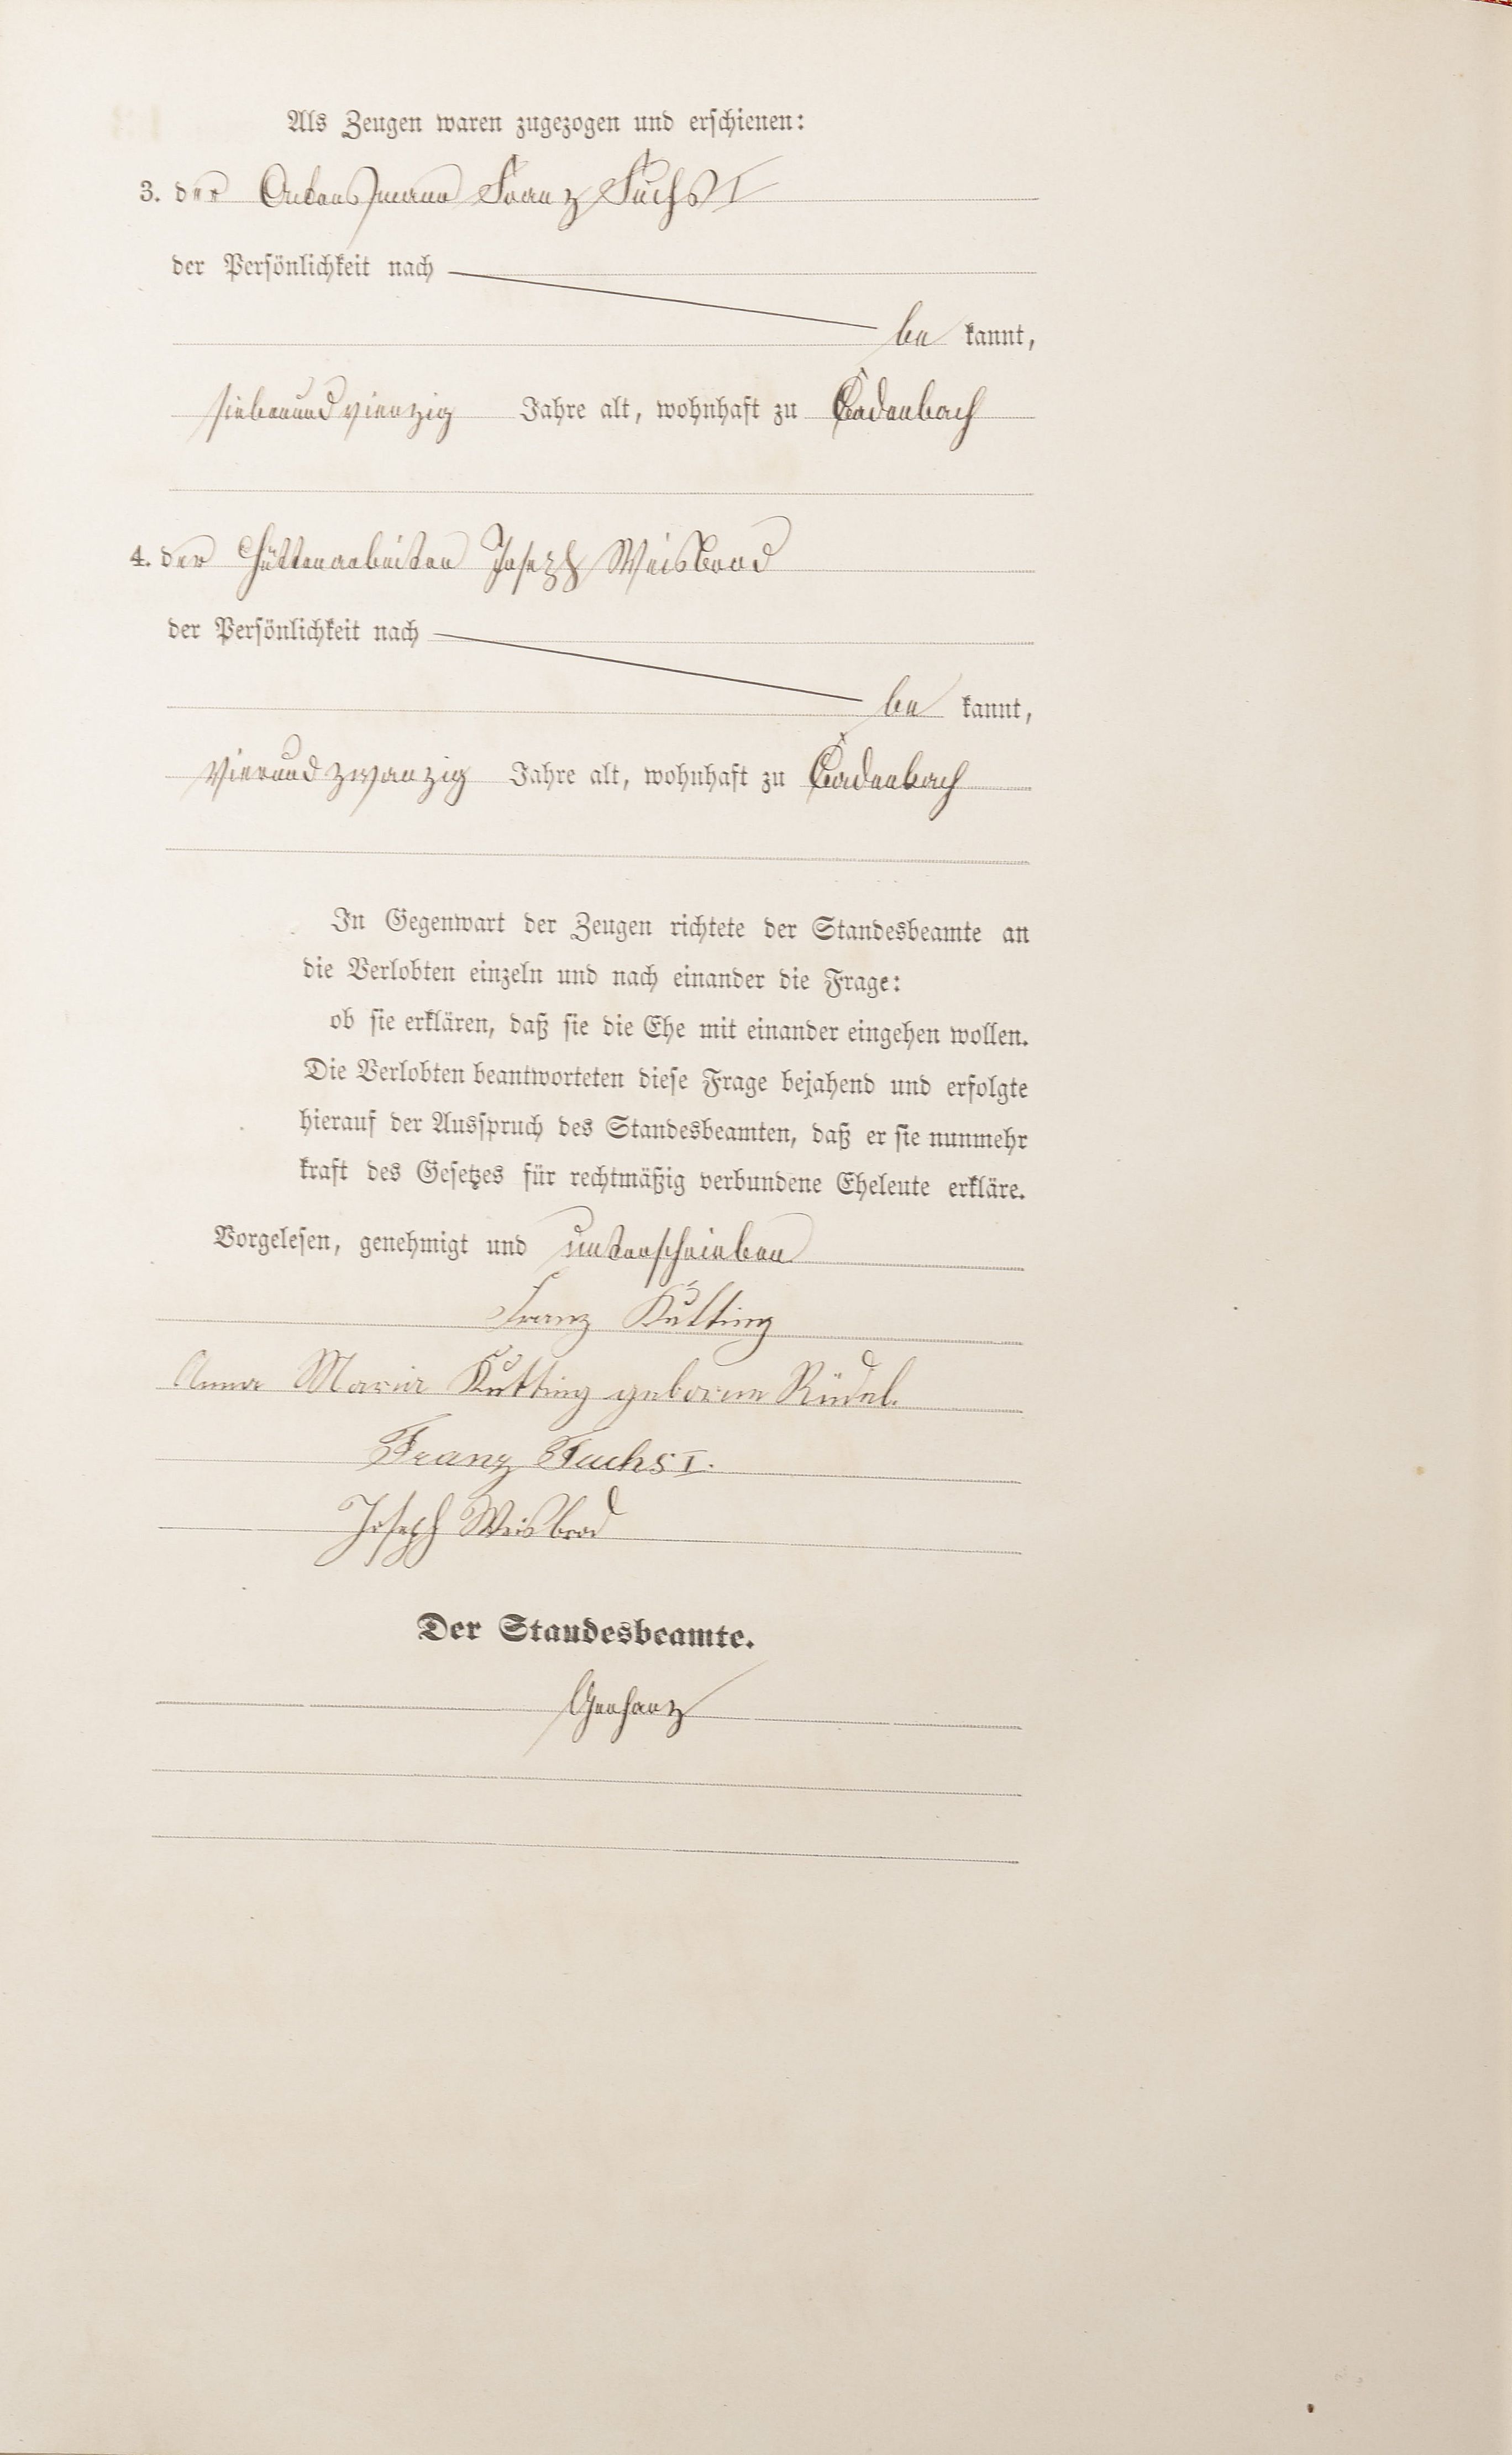 Als Zeugen waren zugezogen und erschienen:
3. der Ackersmann Franz Fuchs I
der Persönlichkeit nach
be kannt,
siebenundvierzig Jahre alt, wohnhaft zu Cadenbach
4. der Hüttenarbeiter Joseph Weisbrod
der Persönlichkeit nach
be kannt,
vierundzwanzig Jahre alt, wohnhaft zu Cadenbach
In Gegenwart der Zeugen richtete der Standesbeamte an
die Verlobten einzeln und nach einander die Frage:
ob sie erklären, daß sie die Ehe mit einander eingehen wollen.
Die Verlobten beantworteten diese Frage bejahend und erfolgte
hierauf der Ausspruch des Standesbeamten, daß er sie nunmehr
kraft des Gesetzes für rechtmäßig verbundene Eheleute erkläre.
Vorgelesen, genehmigt und unterschrieben
Franz Kütting
Anna Maria Kütting geborne Rüdel.
Franz Fuchs I.
Joseph Weisbrod
Der Standesbeamte.
Gerharz